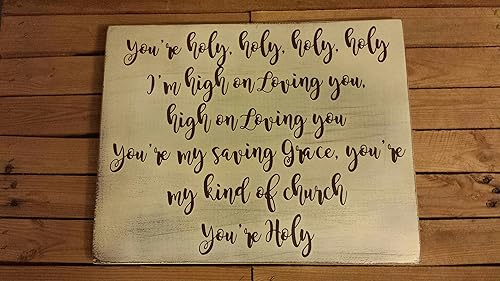 You're holy, holy, holy, holy
I'm high on Loving you,
high on Loving you
You're my saving Grace, you're
my kind of church
You're Holy